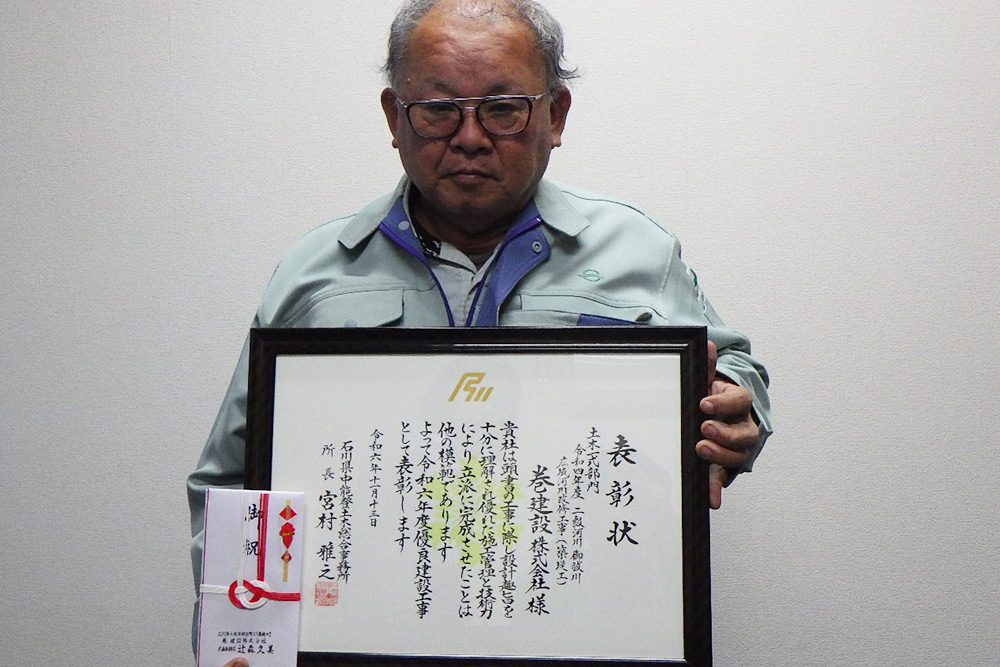 表彰状
土木一式部内
令和四年度 二級河川 御祓川
広域河川改修工事(築堤工)
巻建設株式会社様
貴社は頭書の工事に際し設計趣旨を
十分に理解され優れた施工管理と技術力
により立派に完成させたことは
他の模範であります
よって令和六年度優良建設工事
として表彰します
令和六年十一月十三日
石川県中能登土木総合事務所
所長 宮村雅之
御祝
巻建設株式会社
代表取締役 辻森久美